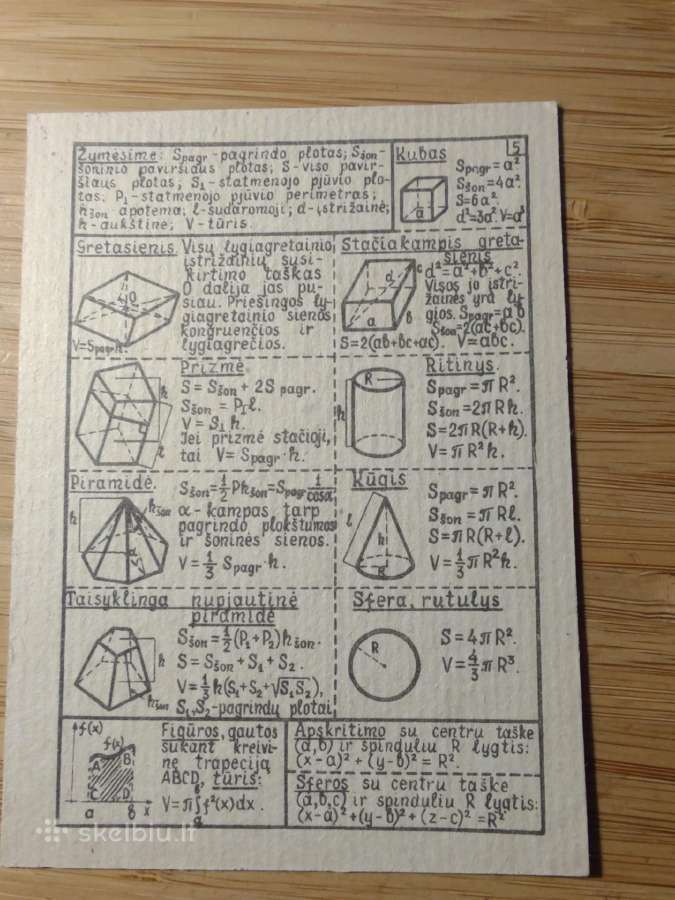 Žymėsime: Spagr-pagrindo plotas; Sšon-
šoninio paviršiaus plotas; S-viso pavir-
šiaus plotas; S₁-statmenojo pjūvio plo-
tas; P₁-statmenojo pjūvio perimetras;
hšon apotema; l-sudaromoji; d-įstrižainė;
h-aukštinė; V-tūris.
Kubas
5
Spagr=a².
Sšon=4a².
S=6a².
d²=3a². V=a³
a
Gretasienis. Visų lygiagretainio
įstrižainių susi-
kirtimo taškas
O dalija jas pu-
siau. Priešingos ly-
giagretainio sienos
kongruenčios ir
lygiagrečios.
O
V=Spagr h.
Stačiakampis greta-
sienis
d²=a²+b²+c².
Visos jo įstri-
žainės yra ly-
gios. Spagr=ab
Sšon=2(ac+bc).
S=2(ab+bc+ac). V=abc.
d
c
a
b
Prizmė.
S=Sšon+2Spagr.
Sšon=P₁l.
V=S₁h.
Jei prizmė stačioji,
tai V=Spagr·h.
h
l
Ritinys.
Spagr=πR².
Sšon=2πRh.
S=2πR(R+h).
V=πR²h.
R
h
Piramidė.
Sšon=1/2Phšon=Spagr 1/cosα
α-kampas tarp
pagrindo plokštumos
ir šoninės sienos.
V=1/3 Spagr·h.
h
hšon
α
Kūgis
Spagr=πR².
Sšon=πRl.
S=πR(R+l).
V=1/3πR²h.
l
h
R
Taisyklinga nupjautinė
piramidė
Sšon=1/2(P₁+P₂)hšon.
S=Sšon+S₁+S₂.
V=1/3h(S₁+S₂+√S₁S₂),
S₁,S₂-pagrindų plotai
h
hšon
Sfera, rutulys
S=4πR².
V=4/3πR³.
R
f(x)
f(x)
A B
C D
a b x
Figūros, gautos
sukant kreivi-
nę trapeciją
ABCD, tūris:
V=π∫ₐᵇf²(x)dx.
Apskritimo su centru taške
(a,b) ir spinduliu R lygtis:
(x-a)²+(y-b)²=R².
Sferos su centru taške
(a,b,c) ir spinduliu R lygtis:
(x-a)²+(y-b)²+(z-c)²=R²
skelbiu.lt